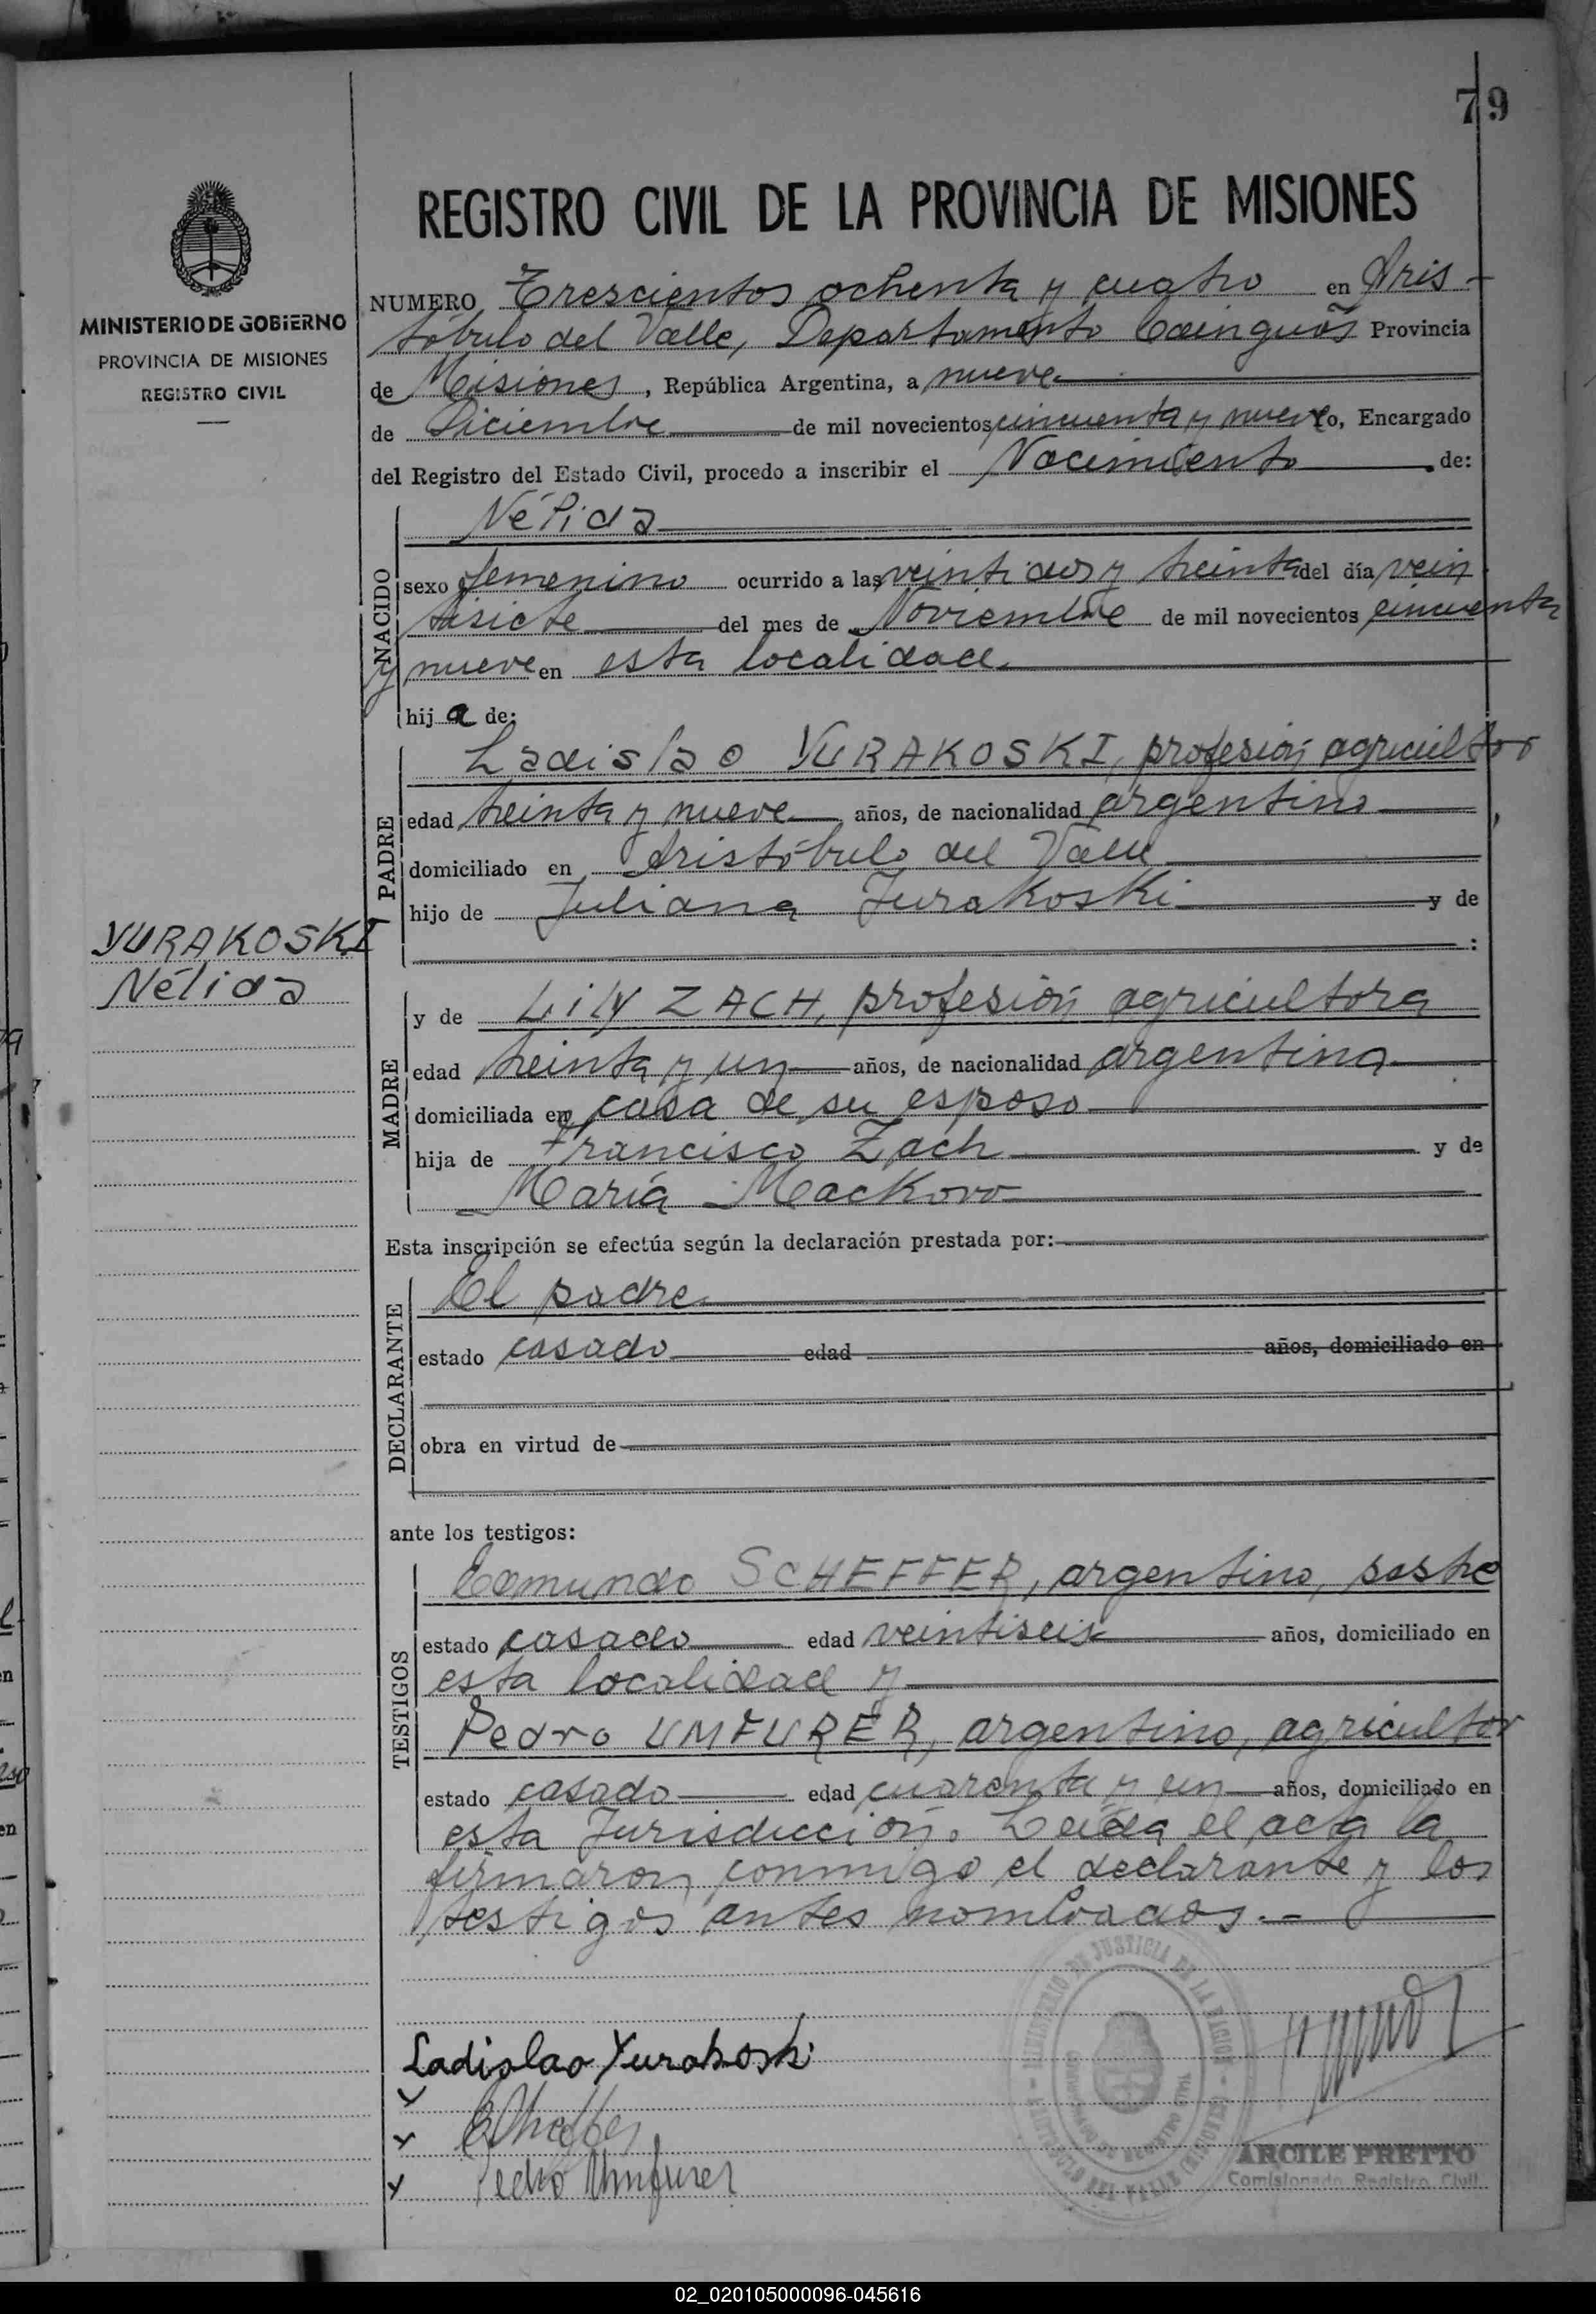 79
MINISTERIO DE GOBIERNO
PROVINCIA DE MISIONES
REGISTRO CIVIL
REGISTRO CIVIL DE LA PROVINCIA DE MISIONES
NUMERO Trescientos ochenta y cuatro en Aris-
tóbulo del Valle, Departamento Cainguás Provincia
de Misiones, República Argentina, a nueve
de Diciembre de mil novecientos cincuenta y nueve Yo, Encargado
del Registro del Estado Civil, procedo a inscribir el Nacimiento de:
NACIDO
Nélida
sexo femenino ocurrido a las veintidos y treinta del día vein
tisiete del mes de Noviembre de mil novecientos cincuenta
y nueve en esta localidad.
hija de:
PADRE
Ladislao YURAKOSKI, profesión agricultor
edad treinta y nueve años, de nacionalidad argentino
domiciliado en Aristóbulo del Valle
hijo de Juliana Jurakoski y de
:
YURAKOSKI
Nélida
MADRE
y de Lily ZACH, profesión agricultora
edad treinta y un años, de nacionalidad argentina
domiciliada en casa de su esposo
hija de Francisco Zach y de
María Mackovo
Esta inscripción se efectúa según la declaración prestada por:
DECLARANTE
El padre
estado casado edad años, domiciliado en
obra en virtud de
ante los testigos:
TESTIGOS
Edmundo SCHEFFER, argentino, sastre
estado casado edad veintiseis años, domiciliado en
esta localidad y
Pedro UMFURER, argentino, agricultor
estado casado edad cuarenta y un años, domiciliado en
esta Jurisdicción. Leída el acta la
firmaron conmigo el declarante y los
testigos antes nombrados.-
Ladislao Yurakoski
Pedro Umfurer
MINISTERIO DE JUSTICIA DE LA NACION
ARISTOBULO DEL VALLE (MISIONES)
ARCILE PRETTO
Comisionado Registro Civil
02_020105000096-045616